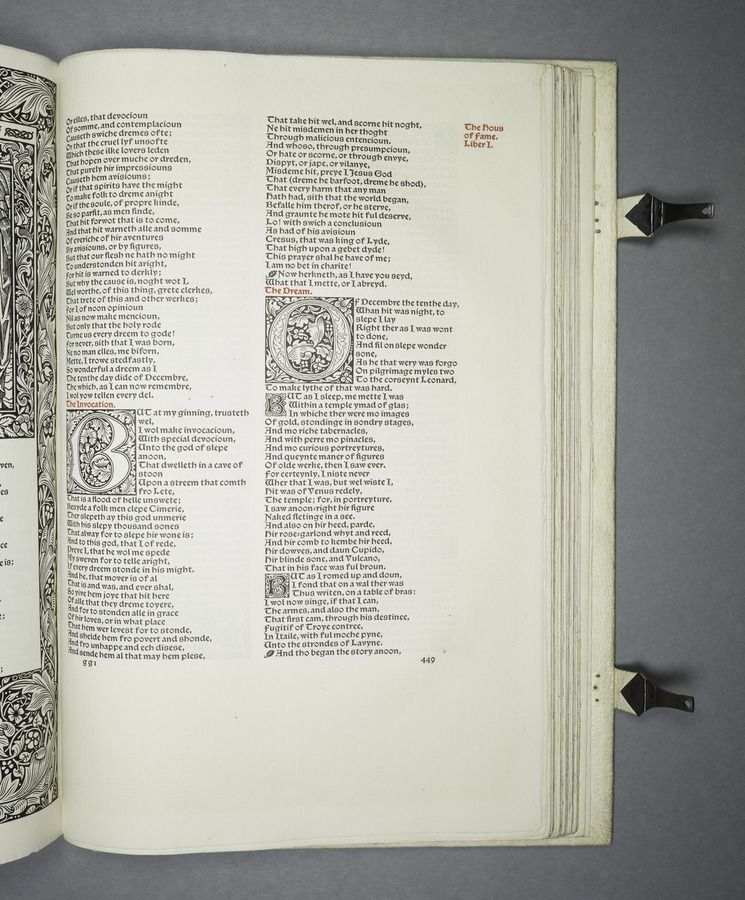 Or elles, that devocioun
Of somme, and contemplacioun
Causeth swiche dremes ofte;
Or that the cruel lyf unsofte
Which these ilke lovers leden
That hopen over muche or dreden,
That purely hir impressiouns
Causeth hem avisiouns;
Or if that spirits have the might
To make folk to dreme anight
Or if the soule, of propre kinde,
Be so parfit, as men finde,
That hit forwot that is to come,
And that hit warneth alle and somme
Of everiche of hir aventures
By avisiouns, or by figures,
But that our flesh ne hath no might
To understonden hit aright,
For hit is warned to derkly;
But why the cause is, noght wot I.
Wel worthe, of this thing, grete clerkes,
That trete of this and other werkes;
For I of noon opinioun
Nil as now make mencioun,
But only that the holy rode
Turne us every dreem to gode!
For never, sith that I was born,
Ne no man elles, me biforn,
Mette, I trowe stedfastly,
So wonderful a dreem as I
The tenthe day dide of Decembre,
The which, as I can now remembre,
I wol yow tellen every del.
The Invocation.
BUT at my ginning, trusteth
wel,
I wol make invocacioun,
With special devocioun,
Unto the god of slepe
anoon,
That dwelleth in a cave of
stoon
Upon a streem that comth
fro Lete,
That is a flood of helle unswete;
Besyde a folk men clepe Cimerie,
Ther slepeth ay this god unmerie
With his slepy thousand sones
That alway for to slepe hir wone is;
And to this god, that I of rede,
Preye I, that he wol me spede
My sweven for to telle aright,
If every dreem stonde in his might.
And he, that mover is of al
That is and was, and ever shal,
So yive hem joye that hit here
Of alle that they dreme to yere,
And for to stonden alle in grace
Of hir loves, or in what place
That hem wer levest for to stonde,
And shelde hem fro povert and shonde,
And fro unhappe and ech disese,
And sende hem al that may hem plese,
gg1
That take hit wel, and scorne hit noght,
Ne hit misdemen in her thoght
Through malicious entencioun.
And whoso, through presumpcioun,
Or hate or scorne, or through envye,
Dispyt, or jape, or vilanye,
Misdeme hit, preye I Jesus God
That (dreme he barfoot, dreme he shod),
That every harm that any man
Hath had, sith that the world began,
Befalle him therof, or he sterve,
And graunte he mote hit ful deserve,
Lo! with swich a conclusioun
As had of his avisioun
Cresus, that was king of Lyde,
That high upon a gebet dyde!
This prayer shal he have of me;
I am no bet in charite!
Now herkneth, as I have you seyd,
What that I mette, or I abreyd.
The Dream.
Of Decembre the tenthe day,
Whan hit was night, to
slepe I lay
Right ther as I was wont
to done,
And fil on slepe wonder
sone,
As he that wery was forgo
On pilgrimage myles two
To the corseynt Leonard,
To make lythe of that was hard.
BUT as I sleep, me mette I was
Within a temple ymad of glas;
In whiche ther were mo images
Of gold, stondinge in sondry stages,
And mo riche tabernacles,
And with perre mo pinacles,
And mo curious portreytures,
And queynte maner of figures
Of olde werke, then I saw ever.
For certeynly, I niste never
Wher that I was, but wel wiste I,
Hit was of Venus redely,
The temple; for, in portreyture,
I saw anoon-right hir figure
Naked fletinge in a see.
And also on hir heed, parde,
Hir rose-garlond whyt and reed,
And hir comb to kembe hir heed,
Hir dowves, and daun Cupido,
Hir blinde sone, and Vulcano,
That in his face was ful broun.
BUT as I romed up and doun,
I fond that on a wal ther was
Thus writen, on a table of bras:
I wol now singe, if that I can,
The armes, and also the man,
That first cam, through his destinee,
Fugitif of Troye contree,
In Itaile, with ful moche pyne,
Unto the strondes of Lavyne.
And tho began the story anoon,
449
The Hous
of Fame.
Liber I.